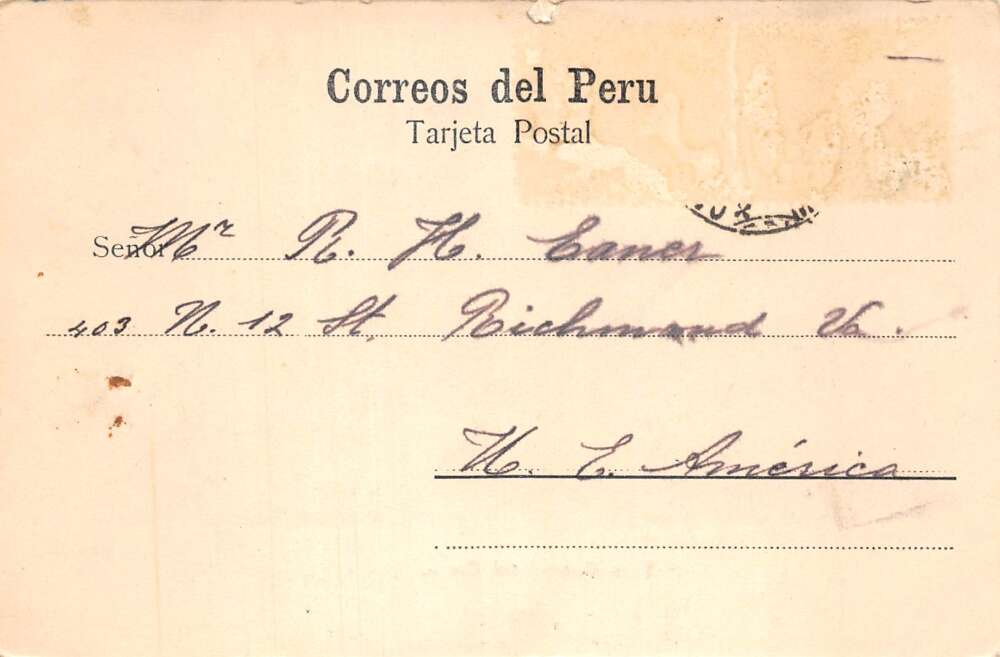 Correos del Peru
Tarjeta Postal
Señor Mr R. H. Eanes
403 N. 12 St. Richmond Va.
U. E. América